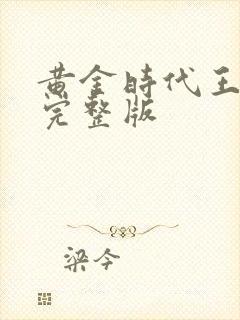 黄金時代王
完整版
梁今